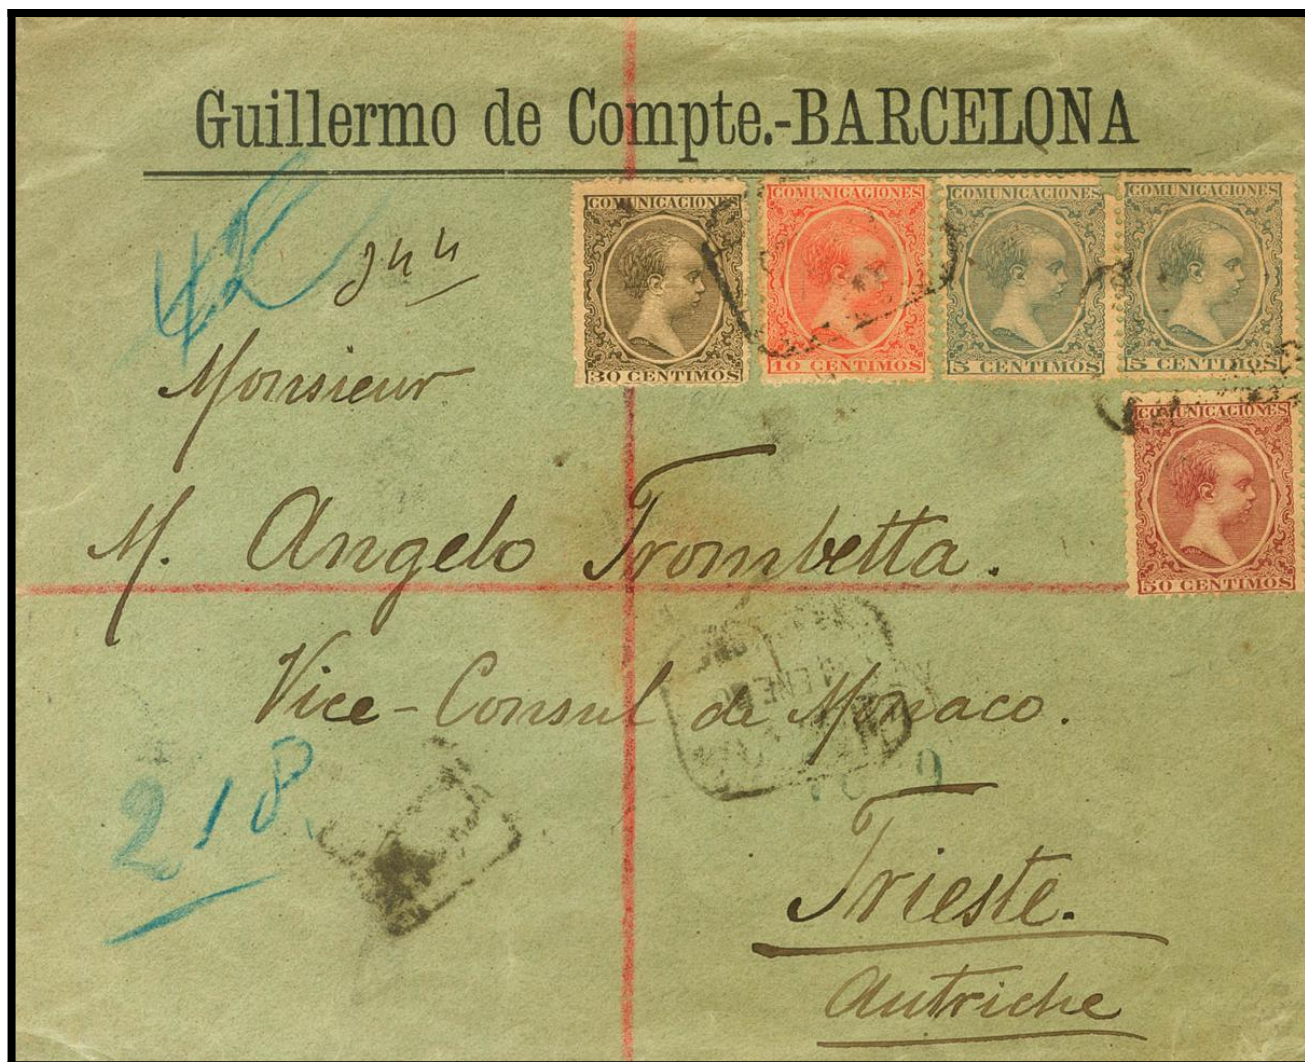 Guillermo de Compte.-BARCELONA
COMUNICACIONES
30 CENTIMOS
COMUNICACIONES
10 CENTIMOS
COMUNICACIONES
5 CENTIMOS
COMUNICACIONES
5 CENTIMOS
COMUNICACIONES
50 CENTIMOS
Monsieur
M. Angelo Trombetta.
Vice-Consul de Monaco.
218
Trieste.
Autriche